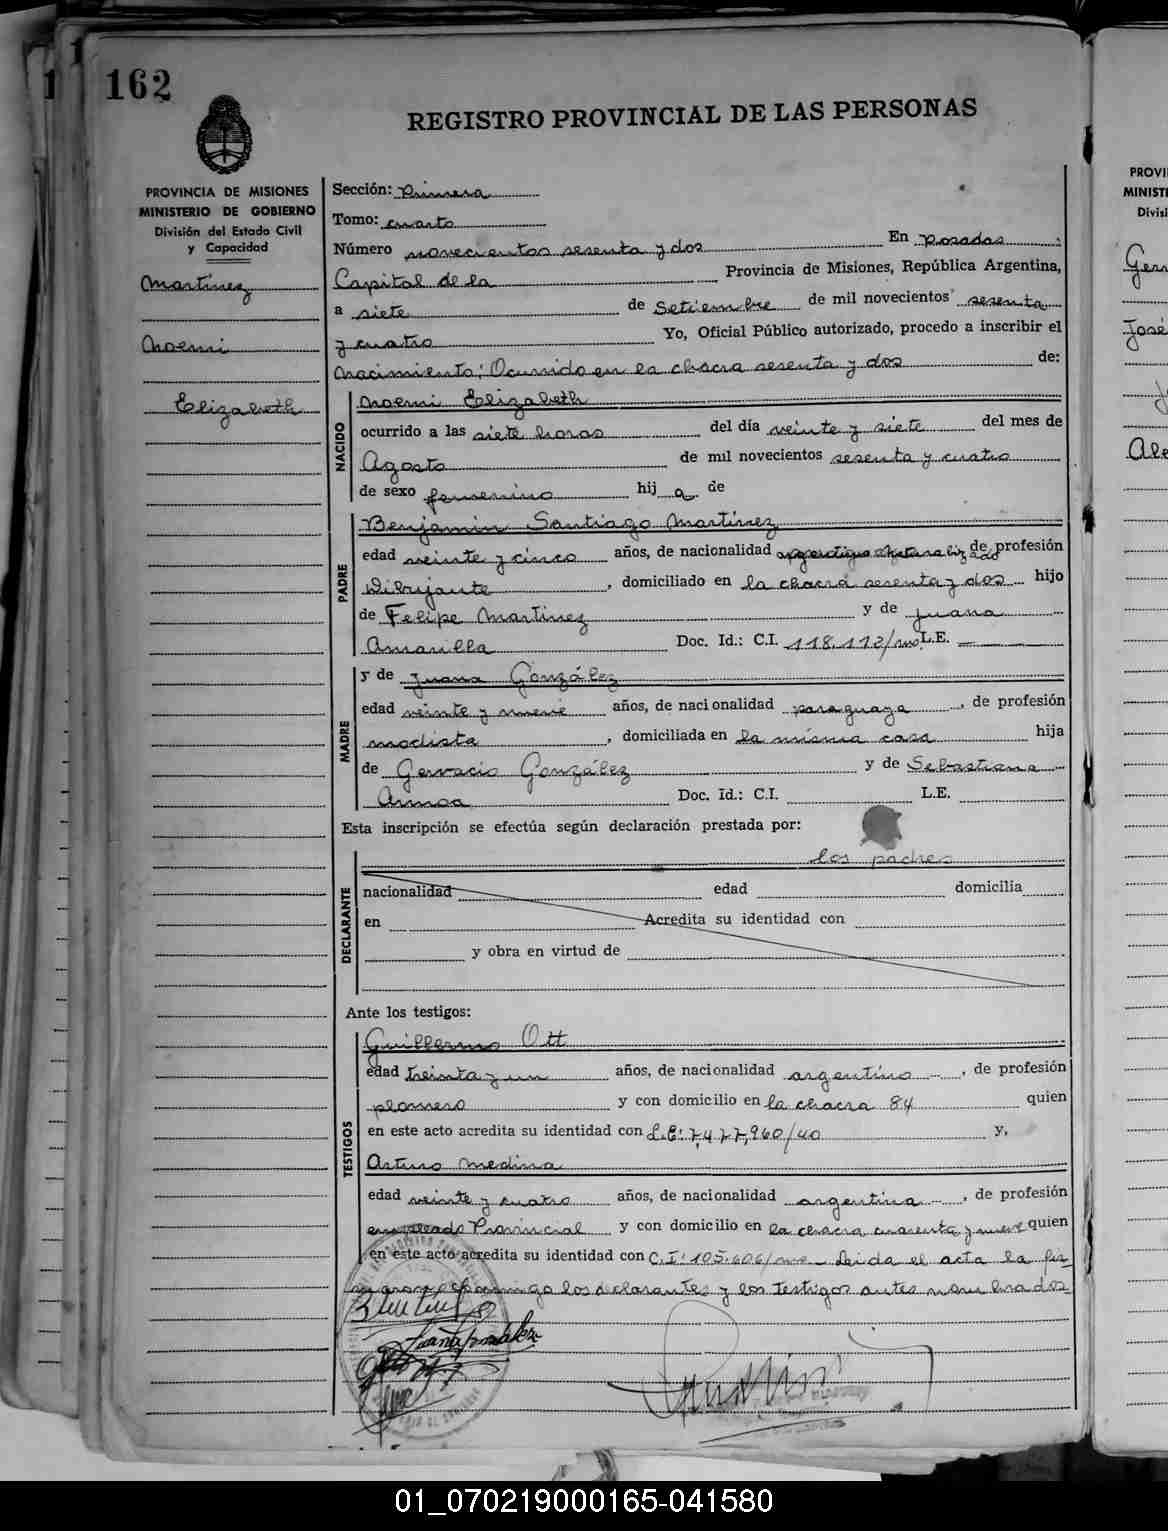 162
REGISTRO PROVINCIAL DE LAS PERSONAS
PROVINCIA DE MISIONES
MINISTERIO DE GOBIERNO
División del Estado Civil
y Capacidad
Martínez
Noemi
Elizabeth
Sección: Primera
Tomo: cuarto
Número novecientos sesenta y dos En Posadas
Capital de la Provincia de Misiones, República Argentina,
a siete de Setiembre de mil novecientos sesenta
y cuatro Yo, Oficial Público autorizado, procedo a inscribir el
Nacimiento; Ocurrido en la chacra sesenta y dos de:
NACIDO
Noemi Elizabeth
ocurrido a las siete horas del día veinte y siete del mes de
Agosto de mil novecientos sesenta y cuatro
de sexo femenino hij a de
PADRE
Benjamin Santiago Martínez
edad veinte y cinco años, de nacionalidad argentino naturalizado de profesión
Dibujante, domiciliado en la chacra sesenta y dos hijo
de Felipe Martinez y de Juana
Amarilla Doc. Id.: C.I. 118.112/mo L.E.
MADRE
y de Juana González
edad veinte y nueve años, de nacionalidad paraguaya, de profesión
modista, domiciliada en la misma casa hija
de Gervacio González y de Sebastiana
Armoa Doc. Id.: C.I. L.E.
Esta inscripción se efectúa según declaración prestada por:
DECLARANTE
los padres
nacionalidad edad domicilia
en Acredita su identidad con
y obra en virtud de
Ante los testigos:
TESTIGOS
Guillermo Ott
edad treinta y un años, de nacionalidad argentino, de profesión
plomero y con domicilio en la chacra 84 quien
en este acto acredita su identidad con L.E: 7,477,960/40 y,
Arturo Medina
edad veinte y cuatro años, de nacionalidad argentina, de profesión
empleado Provincial y con domicilio en la chacra cuarenta y nueve quien
en este acto acredita su identidad con C.I: 105.606/mo Leida el acta la fir-
man conmigo los declarantes y los testigos antes nombrados
PROVI
MINIST
Divis
Ger
José
Ale
01_070219000165-041580